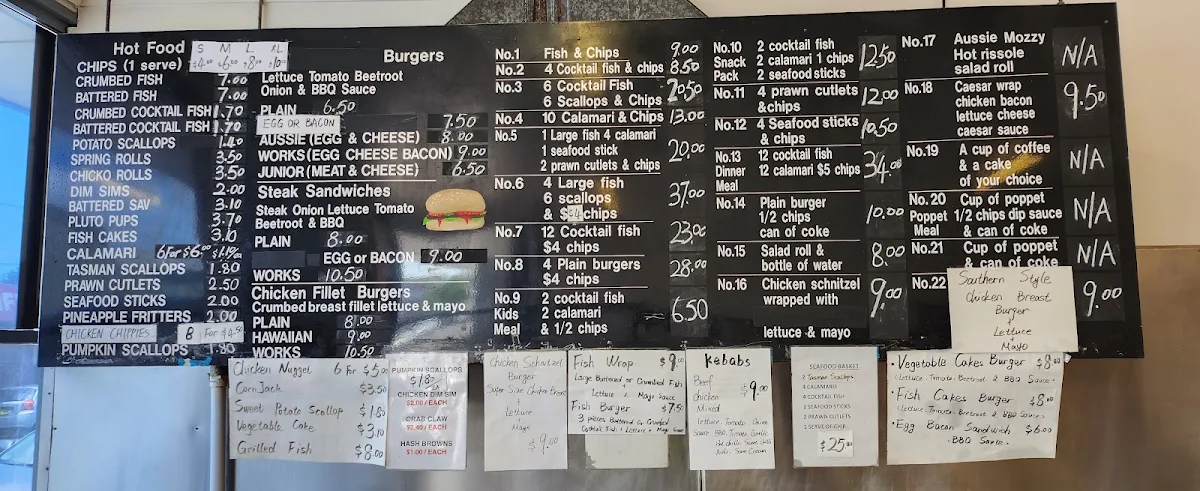 Hot Food
CHIPS (1 serve)
S M L XL
$4.00 $6.00 $8.00 $10.00
CRUMBED FISH 7.00
BATTERED FISH 7.00
CRUMBED COCKTAIL FISH 1.70
BATTERED COCKTAIL FISH 1.70
POTATO SCALLOPS 1.40
SPRING ROLLS 3.50
CHICKO ROLLS 3.50
DIM SIMS 2.00
BATTERED SAV 3.10
PLUTO PUPS 3.70
FISH CAKES 3.10
CALAMARI 6 For $6.00
TASMAN SCALLOPS 1.80
PRAWN CUTLETS 2.50
SEAFOOD STICKS 2.00
PINEAPPLE FRITTERS 2.00
CHICKEN CHIPPIES 8 For $4.50
PUMPKIN SCALLOPS 1.80
Burgers
Lettuce Tomato Beetroot
Onion & BBQ Sauce
PLAIN 6.50
EGG OR BACON 7.50
AUSSIE (EGG & CHEESE) 8.00
WORKS (EGG CHEESE BACON) 9.00
JUNIOR (MEAT & CHEESE) 6.50
Steak Sandwiches
Steak Onion Lettuce Tomato
Beetroot & BBQ
PLAIN 8.00
EGG or BACON 9.00
WORKS 10.50
Chicken Fillet Burgers
Crumbed breast fillet lettuce & mayo
PLAIN 8.00
HAWAIIAN 9.00
WORKS 10.50
No.1 Fish & Chips 9.00
No.2 4 Cocktail fish & chips 8.50
No.3 6 Cocktail Fish
6 Scallops & Chips 20.50
No.4 10 Calamari & Chips 13.00
No.5 1 Large fish 4 calamari
1 seafood stick
2 prawn cutlets & chips 20.00
No.6 4 Large fish
6 scallops
& $4 chips 37.00
No.7 12 Cocktail fish
$4 chips 23.00
No.8 4 Plain burgers
$4 chips 28.00
No.9 2 cocktail fish
Kids 2 calamari
Meal & 1/2 chips 6.50
No.10 2 cocktail fish
Snack 2 calamari 1 chips 12.50
Pack 2 seafood sticks
No.11 4 prawn cutlets
& chips 12.00
No.12 4 Seafood sticks
& chips 10.50
No.13 12 cocktail fish
Dinner 12 calamari $5 chips 34.00
Meal
No.14 Plain burger
1/2 chips
can of coke 10.00
No.15 Salad roll &
bottle of water 8.00
No.16 Chicken schnitzel
wrapped with 9.00
lettuce & mayo
No.17 Aussie Mozzy
Hot rissole
salad roll N/A
No.18 Caesar wrap
chicken bacon
lettuce cheese
caesar sauce 9.50
No.19 A cup of coffee
& a cake
of your choice N/A
No.20 Cup of poppet
Poppet 1/2 chips dip sauce
Meal & can of coke N/A
No.21 Cup of poppet
& can of coke N/A
No.22 Southern Style
Chicken Breast
Burger
+
Lettuce
+
Mayo
9.00
Chicken Nugget 6 For $5.00
Corn Jack $3.50
Sweet Potato Scallop $1.80
Vegetable Cake $3.10
Grilled Fish $8.00
PUMPKIN SCALLOPS
$1.80 EA
CHICKEN DIM SIM
$2.00 / EACH
CRAB CLAW
$2.00 / EACH
HASH BROWNS
$1.00 / EACH
Chicken Schnitzel
Burger
Super Size Chicken Breast
+
Lettuce
+
Mayo
$9.00
Fish Wrap $9.00
Large Battered or Crumbed Fish
Lettuce & Mayo Sauce
Fish Burger $7.50
3 pieces Battered or Crumbed
Cocktail Fish + Lettuce + Mayo Sauce
Kebabs
Beef
Chicken $9.00
Mixed
Lettuce, Tomato, Onion
Sauce: BBQ, Tomato, Garlic
Hot chilli, Sweet chilli
Mayo, Sour Cream
SEAFOOD BASKET
2 Tasman Scallops
4 CALAMARIS
4 COCKTAIL FISH
2 SEAFOOD STICKS
2 PRAWN CUTLETS
1 SERVE OF CHIP
$25.00
• Vegetable Cakes Burger $8.00
(Lettuce. Tomato. Beetroot & BBQ Sauce)
• Fish Cakes Burger $8.00
(Lettuce. Tomato. Beetroot & BBQ Sauce)
• Egg Bacon Sandwich $6.00
• BBQ Sauce •